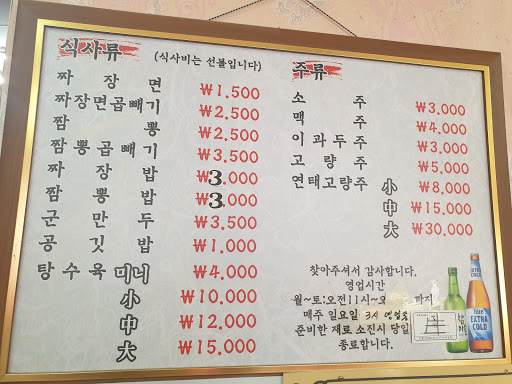 식사류 (식사비는 선불입니다)
짜장면 ₩1.500
짜장면곱빼기 ₩2.500
짬뽕 ₩2.500
짬뽕곱빼기 ₩3.500
짜장밥 ₩3.000
짬뽕밥 ₩3.000
군만두 ₩3.500
공깃밥 ₩1.000
탕수육 미니 ₩4.000
小 ₩10.000
中 ₩12.000
大 ₩15.000
주류
소주 ₩3.000
맥주 ₩4.000
이과두주 ₩3.000
고량주 ₩5.000
연태고량주 小 ₩8.000
中 ₩15.000
大 ₩30.000
찾아주셔서 감사합니다.
영업시간
월~토:오전11시~오 까지
매주 일요일 3시
준비한 재료 소진시 당일
종료합니다.
EXTRA
COLD